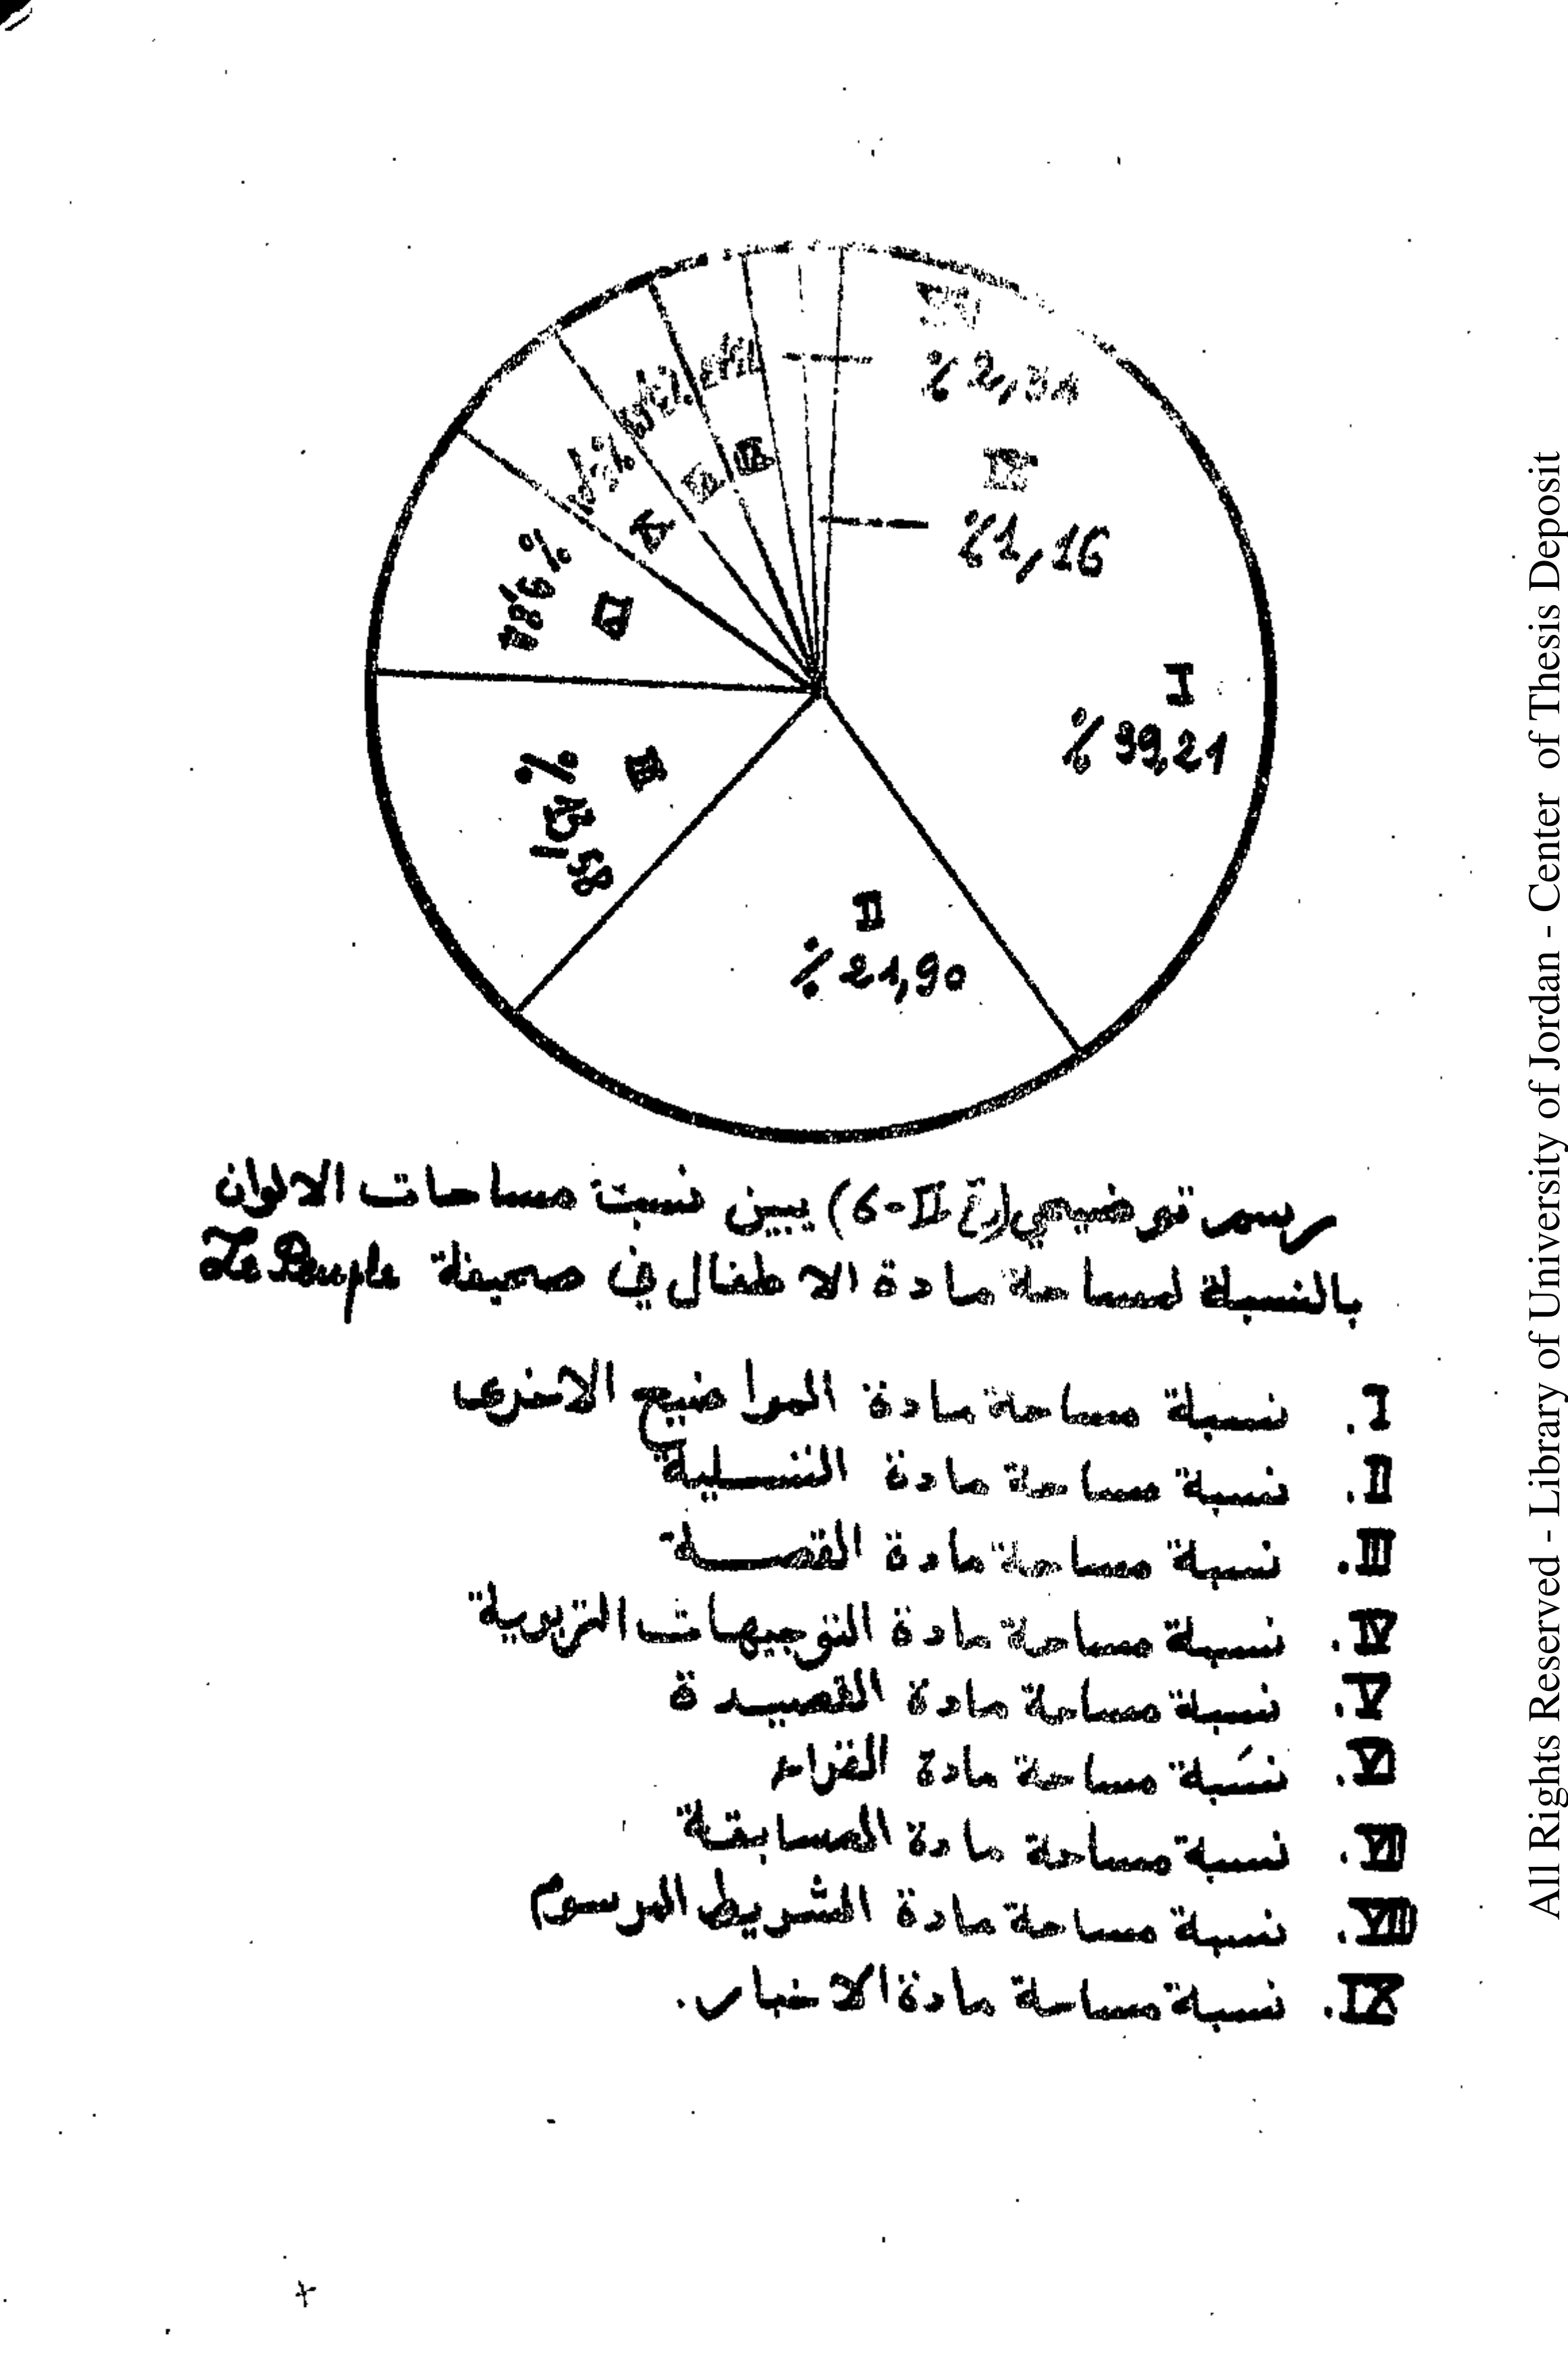 ٪ 2,34
IX
٪ 1,16
I
٪ 39,21
II
٪ 21,90
III
% 13,58
IV
% 9,84
V
VI
VII
رسم توضيحي (رقم II-6) يبين نسبة مساحات الالوان
بالنسبة لمساحة مادة الاطفال في صحيفة Le Peuple
I. نسبة مساحة مادة المواضيع الاخرى
II. نسبة مساحة مادة التسلية
III. نسبة مساحة مادة القصة
IV. نسبة مساحة مادة التوجيهات التربوية
V. نسبة مساحة مادة القصيدة
VI. نسبة مساحة مادة القراء
VII. نسبة مساحة مادة المسابقة
VIII. نسبة مساحة مادة الشريط المرسوم
IX. نسبة مساحة مادة الاخبار.
All Rights Reserved - Library of University of Jordan - Center of Thesis Deposit